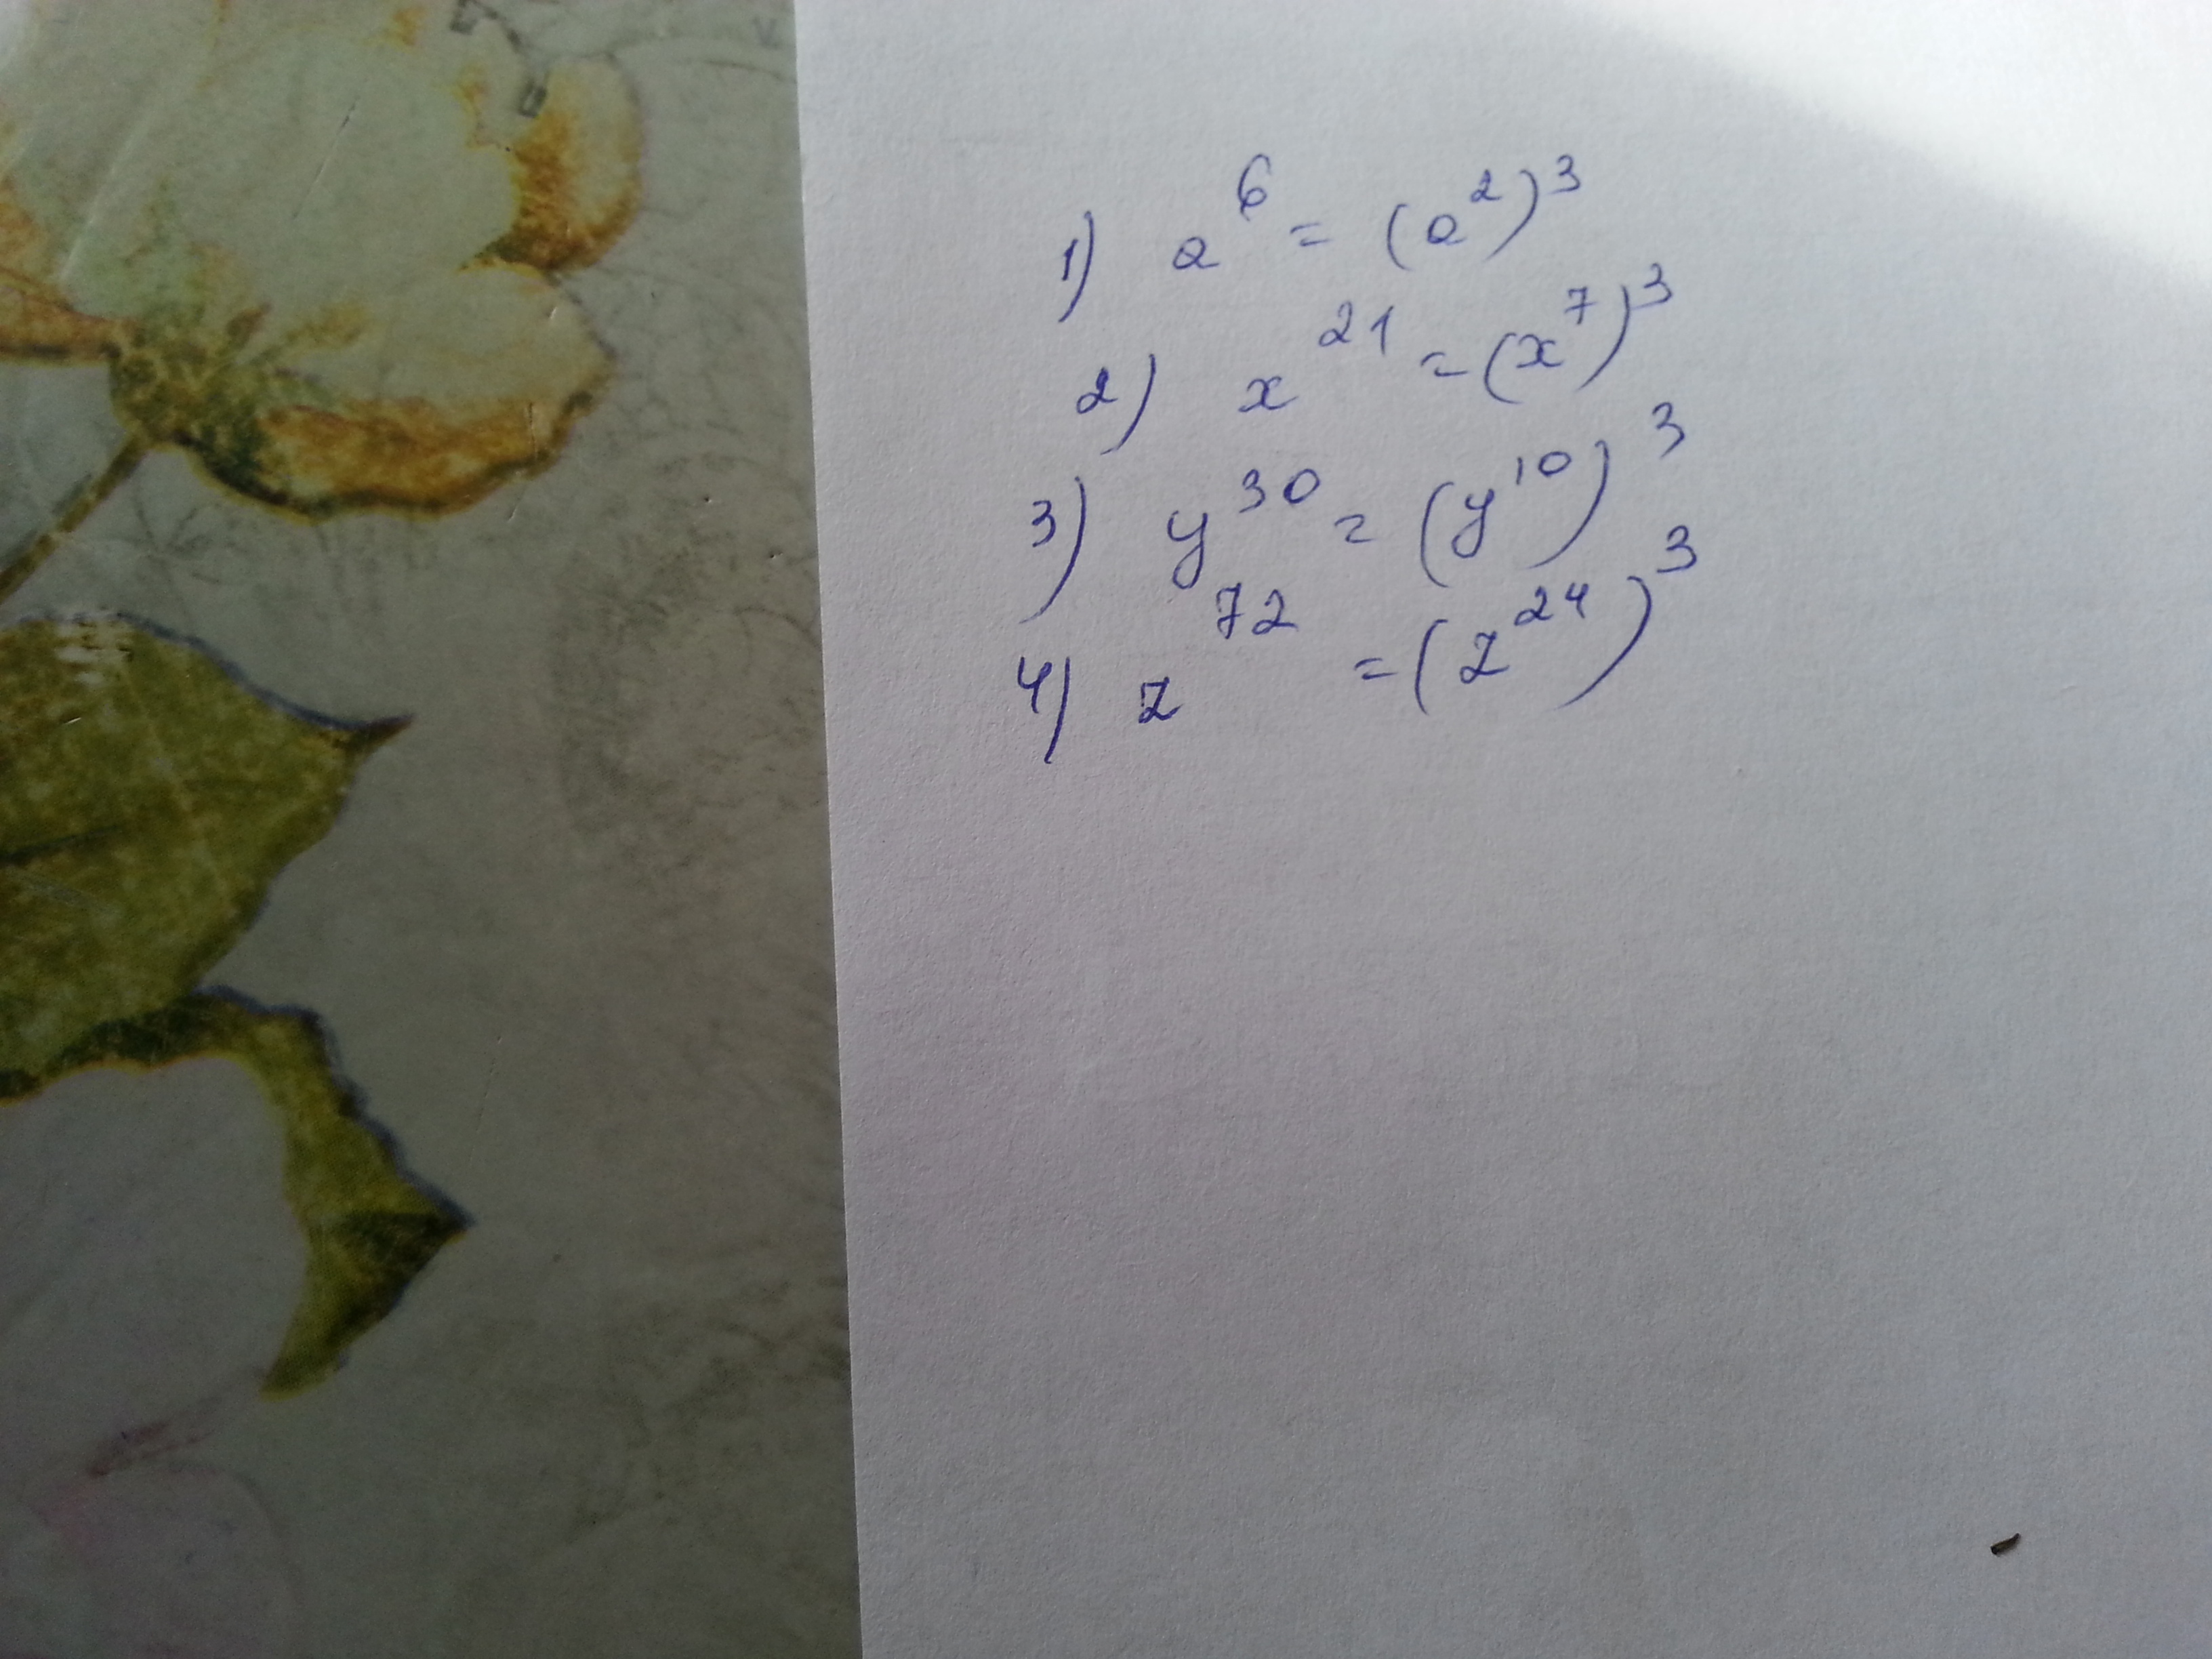 1) a⁶ = (a²)³
2) x²¹ = (x⁷)³
3) y³⁰ = (y¹⁰)³
4) z⁷² = (z²⁴)³